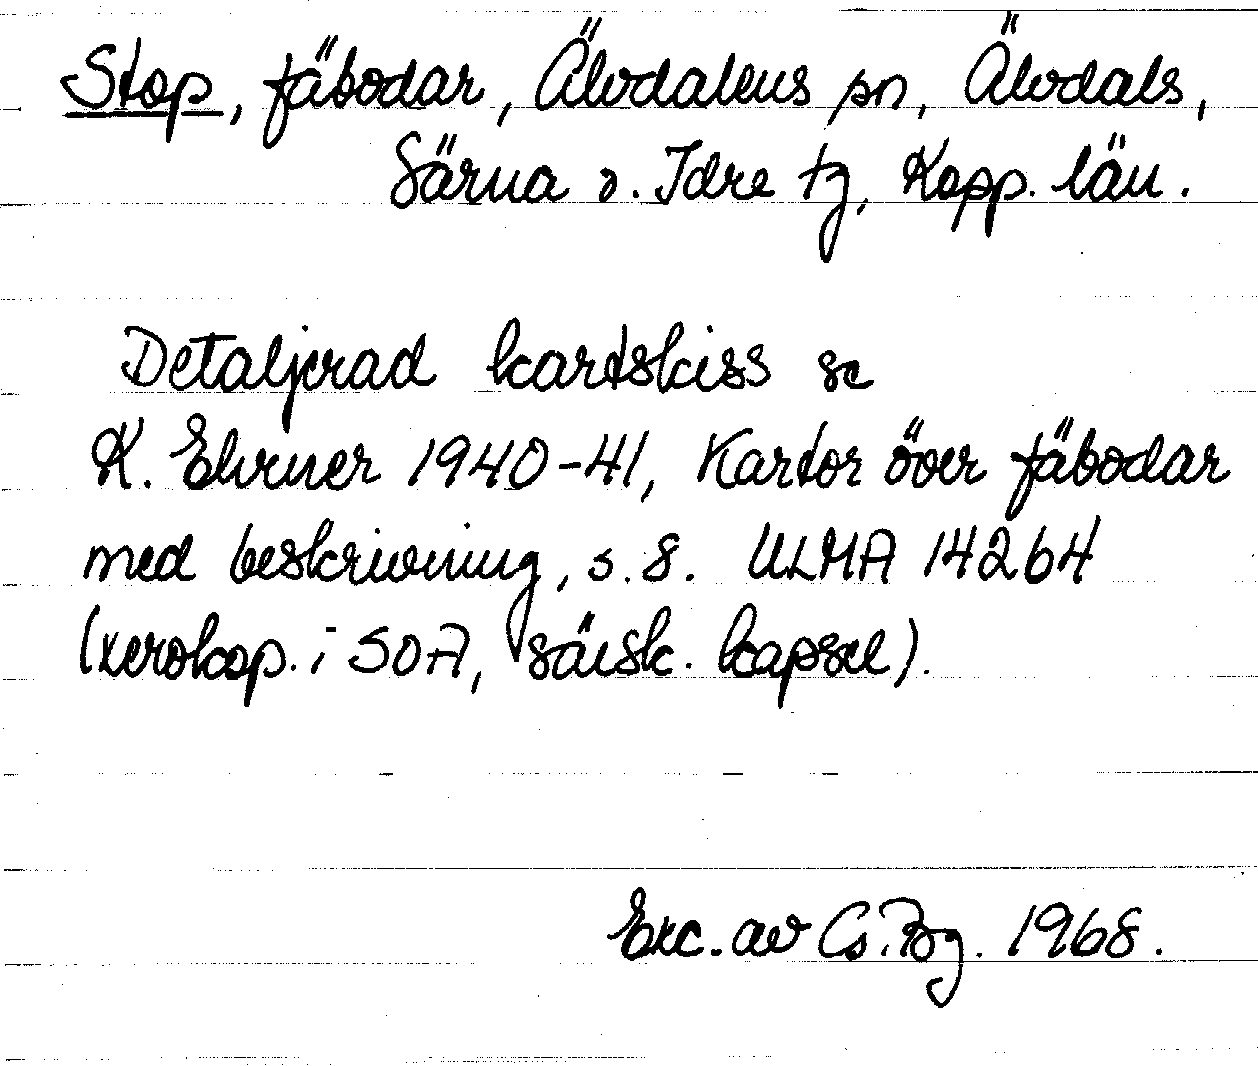 Stop, fäbodar, Älvdalens sn, Älvdals,
Särna o. Idre tg, Kopp. län.
Detaljerad kartskiss se
K. Ehrner 1940-41, Kartor över fäbodar
med beskrivning, s. 8. ULMA 14264
(xerokop. i SOA, särsk. kapsel).
Exc. av Cs. Bg. 1968.